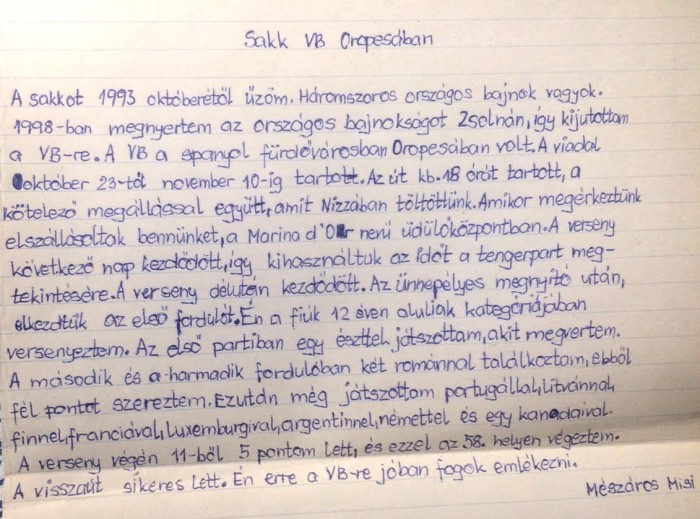 Sakk VB Oropesában
A sakkot 1993 októberétől űzöm. Háromszoros országos bajnok vagyok.
1998-ban megnyertem az országos bajnokságot Zsolnán, így kijutottam
a VB-re. A VB a spanyol fürdővárosban Oropesában volt. A viadal
október 23-tól november 10-ig tartott. Az út kb. 18 órát tartott, a
kötelező megállással együtt, amit Nizzában töltöttünk. Amikor megérkeztünk
elszállásoltak bennünket, a Marina d'Or nevű üdülőközpontban. A verseny
következő nap kezdődött, így kihasználtuk az időt a tengerpart meg-
tekintésére. A verseny délután kezdődött. Az ünnepélyes megnyitó után,
elkezdtük az első fordulót. Én a fiúk 12 éven aluliak kategóriájában
versenyeztem. Az első partiban egy észttel játszottam, akit megvertem.
A második és a harmadik fordulóban két románnal találkoztam, ebből
fél pontot szereztem. Ezután még játszottam portugállal, litvánnal,
finnel, franciával, luxemburgival, argentinnel, némettel és egy kanadaival.
A verseny végén 11-ből 5 pontom lett, és ezzel az 58. helyen végeztem.
A visszaút sikeres lett. Én erre a VB-re jóban fogok emlékezni.
Mészáros Misi